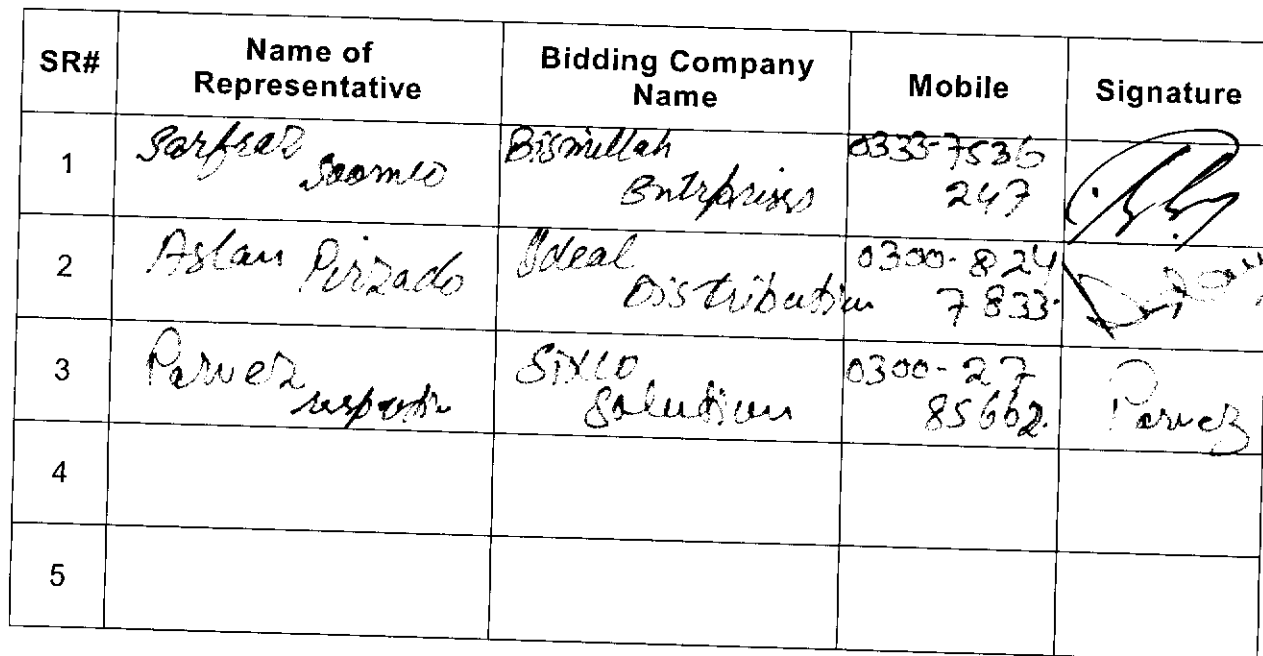 SR# Name of Representative Bidding Company Name Mobile Signature
1 Sarfraz Soomro Bismillah Entrprises 0333-7536 247
2 Aslan Pirzado Ideal Distribution 0300-824 7833
3 Parvez SiXCO Solution 0300-27 85662 Parvez
4
5